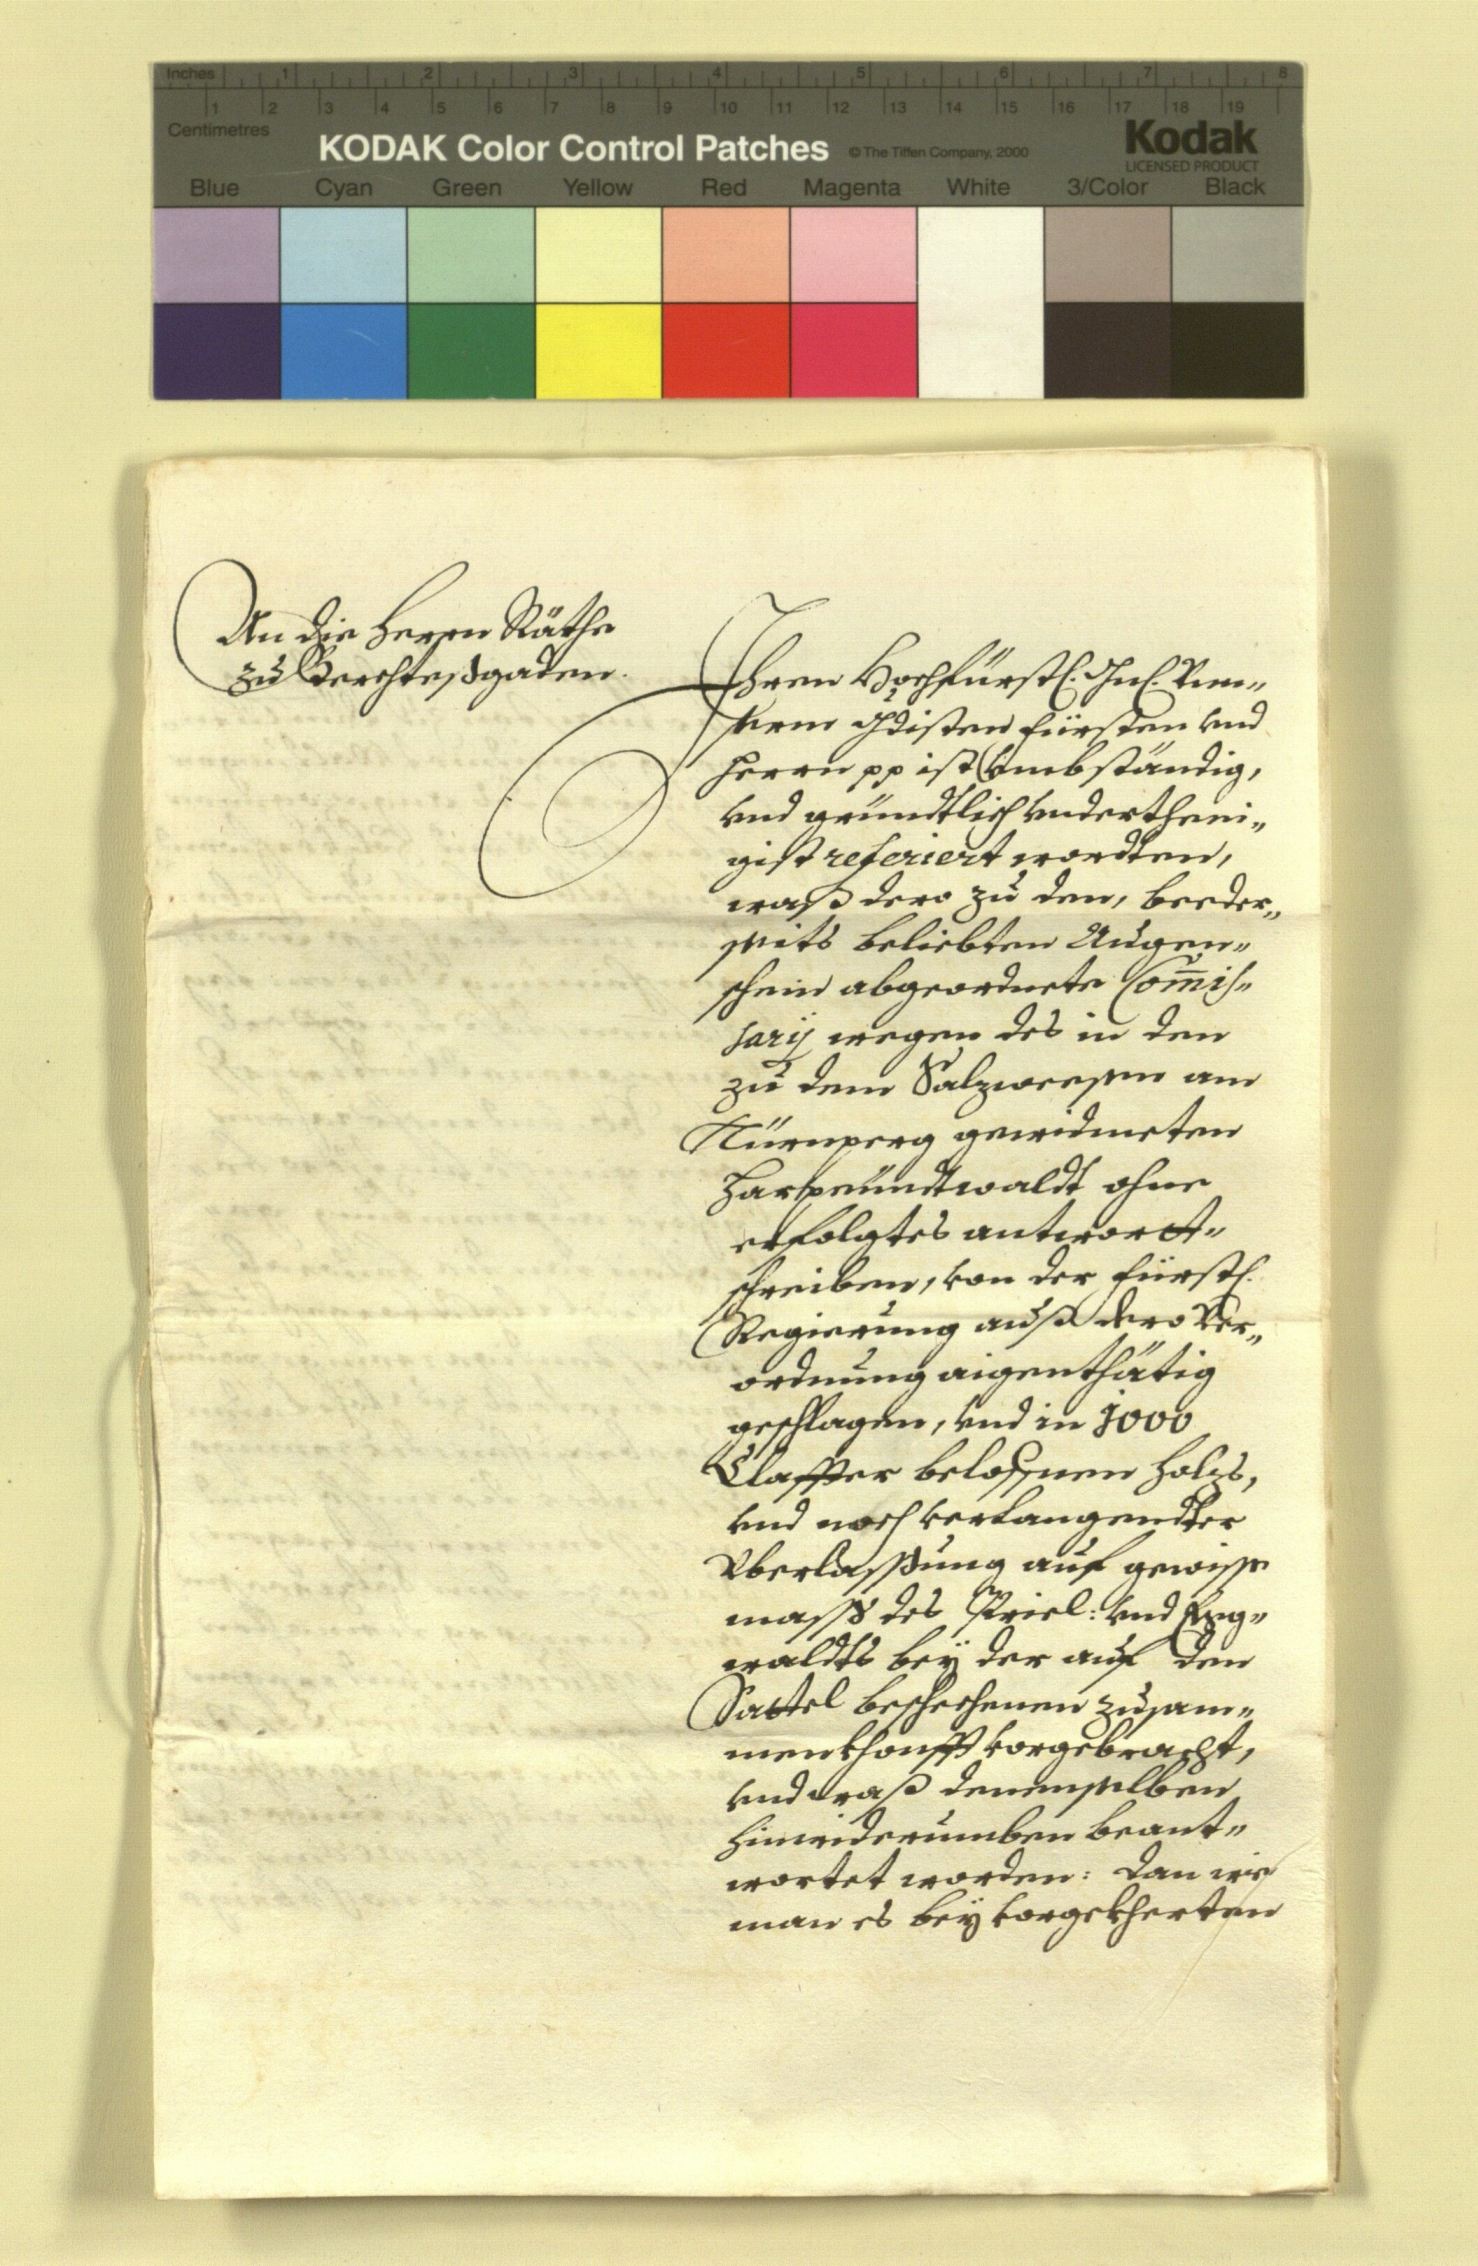 Inches 1 2 3 4 5 6 7 8
1 2 3 4 5 6 7 8 9 10 11 12 13 14 15 16 17 18 19
Centimetres
KODAK Color Control Patches © The Tiffen Company, 2000 Kodak
LICENSED PRODUCT
Blue Cyan Green Yellow Red Magenta White 3/Color Black
An die Herrn Räthe
zu Berchteßgaden.
Ihren Hochfürstl. Gnl. Vnn„
serm Gdisten Fürsten vnd
Herrn pp ist vmbständig,
vnd gründtlich vndertheni„
gist referiert wordten,
waß dero zu den, beeder„
seits beliebten Augen„
schein abgeordnete Com̅is„
sarij wegen des in den
zu dem Salzweesen am
Türnperg gewidmeten
Harpeündtwaldt ohne
erfolgtes antwort„
schreiben, von der Fürstl.
Regierung auß dero Ver„
ordnung aigenthätig
geschlagen, vnd in 1000
Claffter beloffnen Holzs,
vnd noch verlangendter
Vberlassung auf gewisse
mass des Priel: vnd
waldts beÿ der auf den
Sattel beschechenen zusam„
menkhonfft vorgebracht,
vnd waß denenselben
hinwiderumben beant„
wortet worden: dan wie
man es beÿ vorgekherten